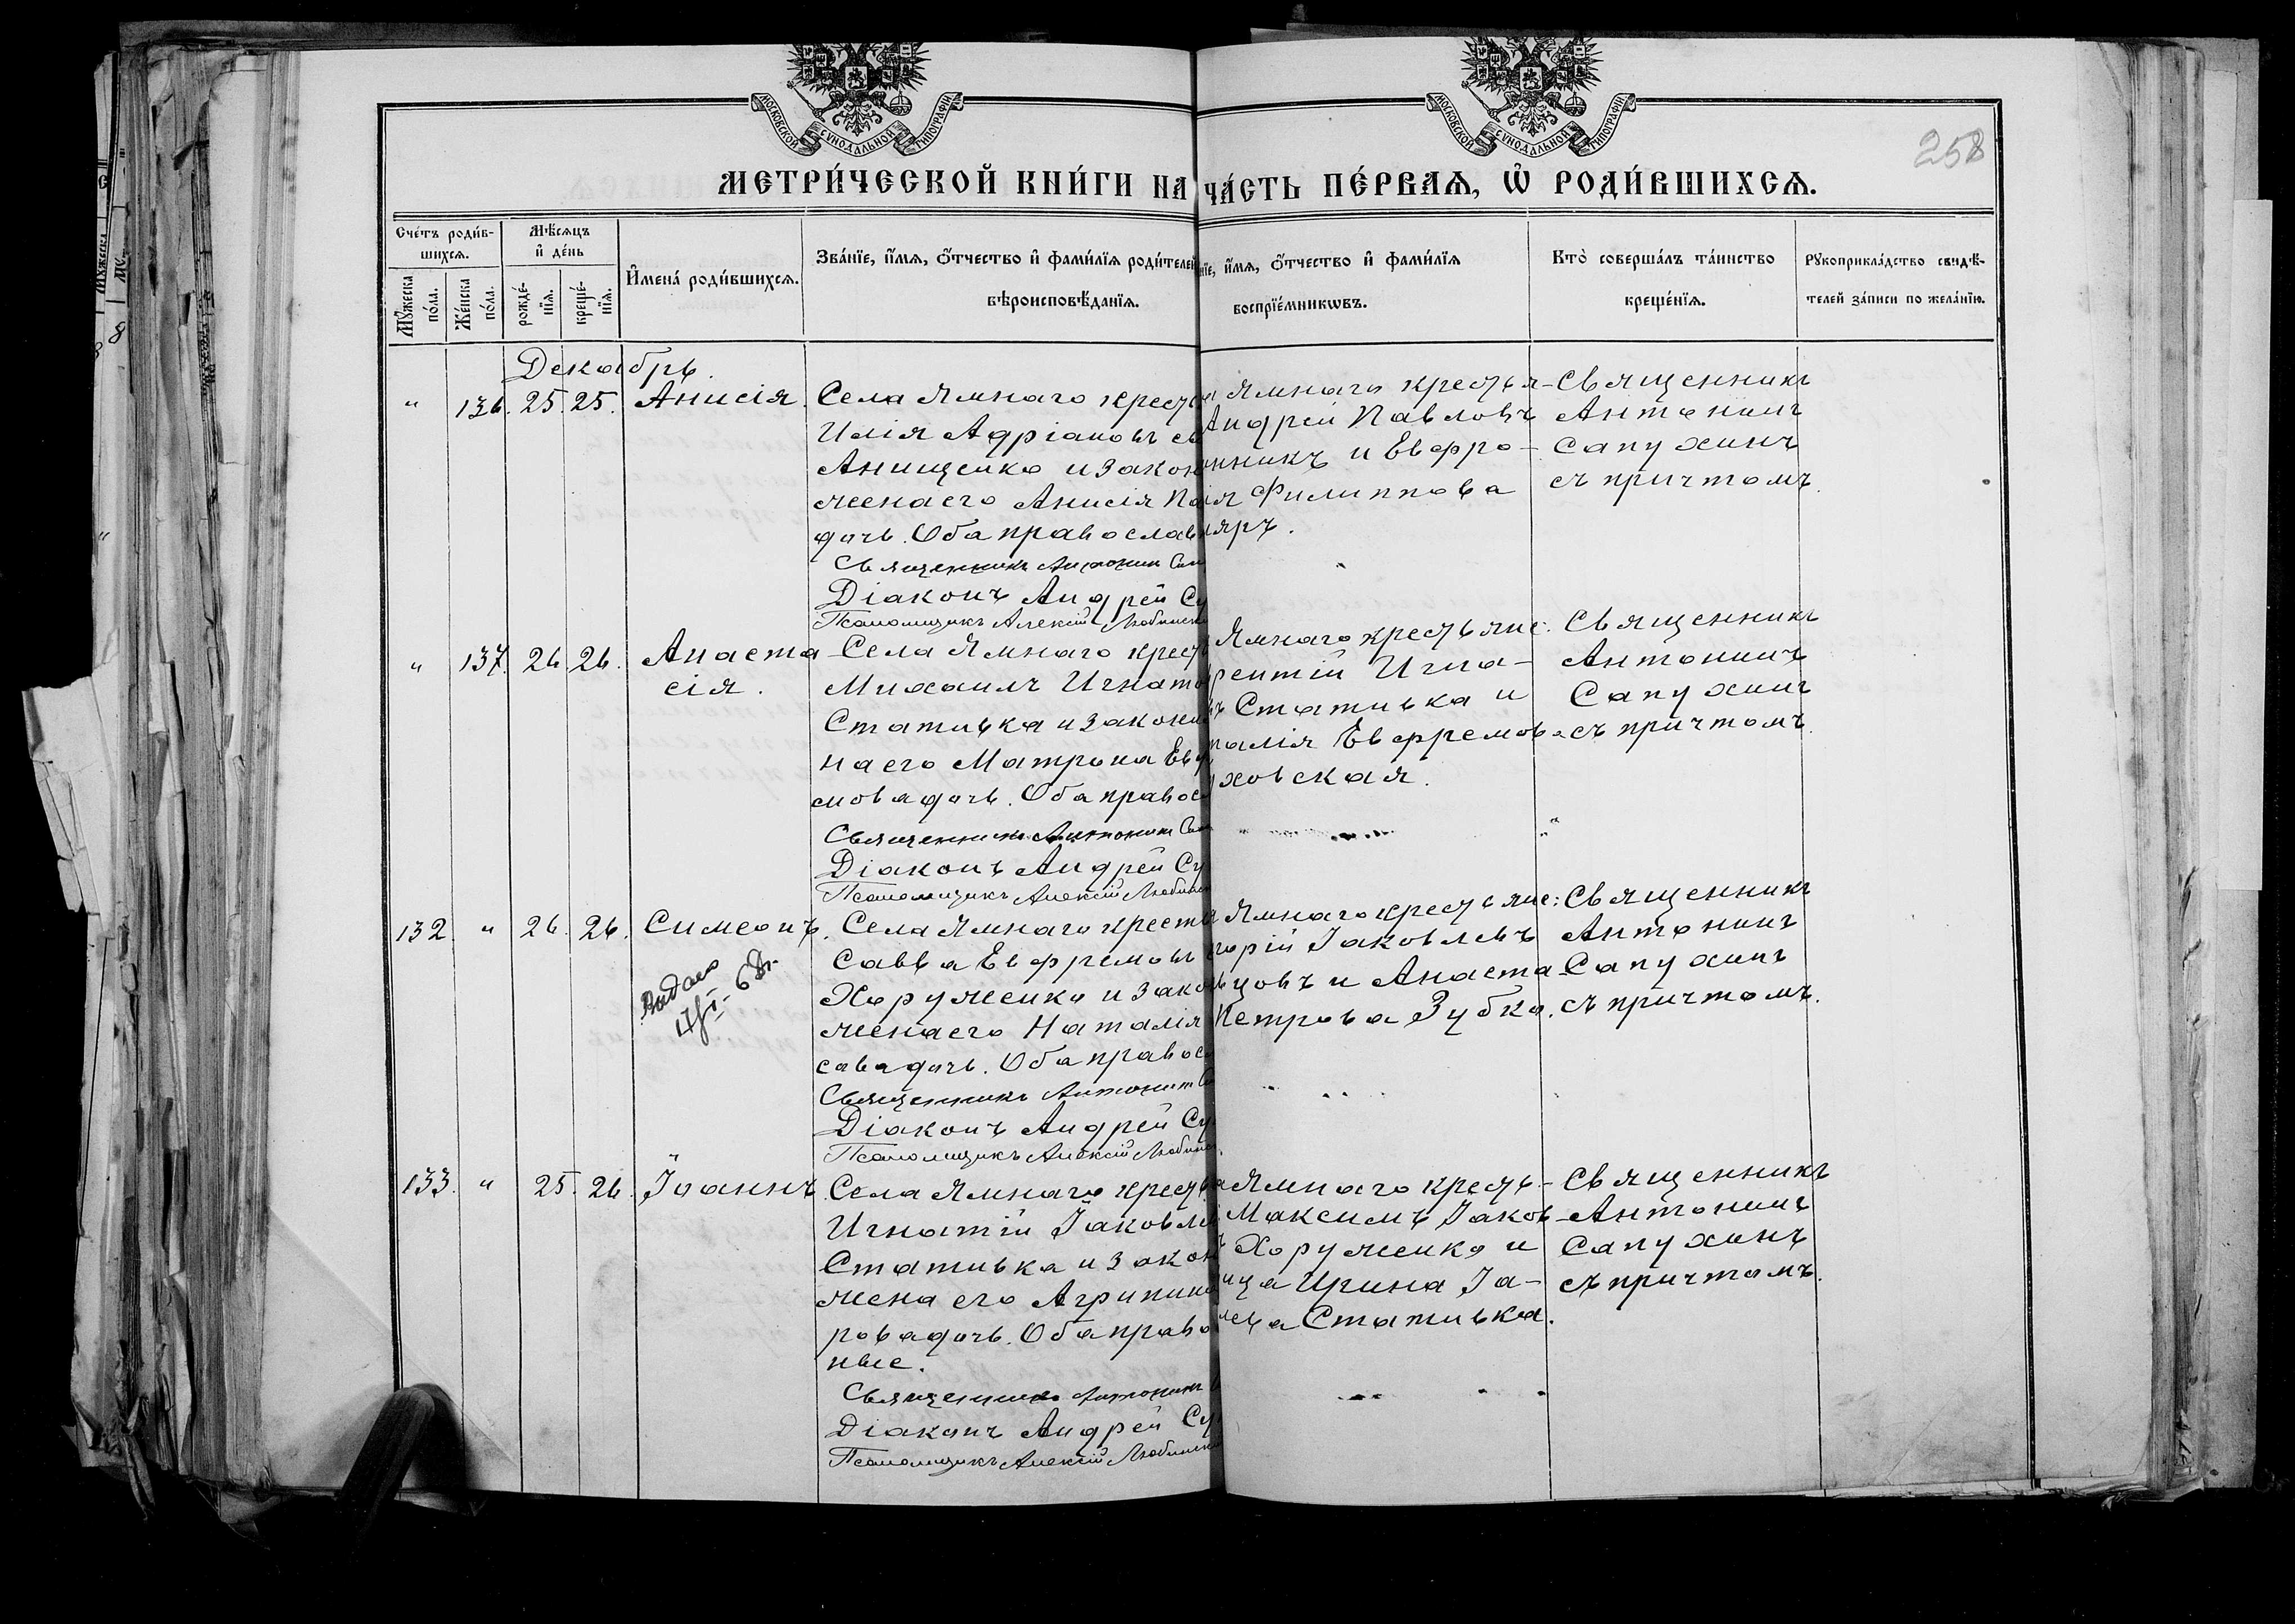 МОСКОВСКОЙ СѴНОДАЛЬНОЙ ТИПОГРАФІИ
МОСКОВСКОЙ СѴНОДАЛЬНОЙ ТИПОГРАФІИ
258
МЕТРИ́ЧЕСКОЙ КНИ́ГИ НА ЧА́СТЬ ПЕ́РВАѦ, Ѡ҆ РОДИ́ВШИХСѦ.
Сче́тъ роди́в-
шихсѧ.
Мꙋ́жеска по́ла.
Же́нска по́ла.
Мѣ́сѧцъ
и҆ де́нь
рожде́-
нїѧ.
креще́-
нїѧ.
И҆мена̀ роди́вшихсѧ.
Зва́нїе, и҆́мѧ, ѻ҆́тчество и҆ фами́лїѧ роди́телей
вѣроисповѣ́данїѧ.
нїе, и҆́мѧ, ѻ҆́тчество и҆ фами́лїѧ
воспрїе́мникѡвъ.
Кто̀ соверша́лъ та́инство
креще́нїѧ.
Рꙋкоприкла́дство свидѣ́-
телей за́писи по жела́нїю.
Декабрь.
" 136. 25. 25. Анисія.
Села Ямнаго кресть
Илія Адріановъ сы
Анищенко и закон
жена его Анисія Па
дочь. Оба православ
Священникъ Антонинъ Сап
Діаконъ Андрей Су
Псаломщикъ Алексій Любинск
а Ямнаго крестья-
Андрей Павловъ
нникъ и Евфро-
ія Филиппова
ляръ.
Священникъ
Антонинъ
Сапухинъ
съ причтомъ.
" 137. 26. 26. Анаста-
сія.
Села Ямнаго крест
Михаилъ Игнато
Статывка и законн
на его Матрона Евф
мова дочь. Оба правос
Священникъ Антонинъ Сап
Діаконъ Андрей Су
Псаломщикъ Алексій Любинс
Ямнаго крестьянс:
рентій Игна-
ъ Статывка и
талія Евфремова
ховская.
Священникъ
Антонинъ
Сапухинъ
съ причтомъ.
132. " 26. 26. Симеонъ.
Выдано
Села Ямнаго кресть
Савва Евфремовъ
Хоруженко и закон
жена его Наталія
сова дочь. Оба правос
Священникъ Антонинъ Са
Діаконъ Андрей Су
Псаломщикъ Алексій Любинс
а Ямнаго крестьянс:
горій Іаковлевъ
цовъ и Анаста-
Петрова Зубко.
Священникъ
Антонинъ
Сапухинъ
съ причтомъ.
133. " 25. 26. Іоаннъ.
Села Ямнаго кресть
Игнатій Іаковле
Статывка и закон
жена его Агрипина
рова дочь. Оба право
ные.
Священникъ Антонинъ
Діаконъ Андрей Су
Псаломщикъ Алексій Любинск
а Ямнаго кресть-
Максимъ Іаков-
ъ Хоруженко и
ица Ирина Іа-
лева Статывка.
Священникъ
Антонинъ
Сапухинъ
съ причтомъ.